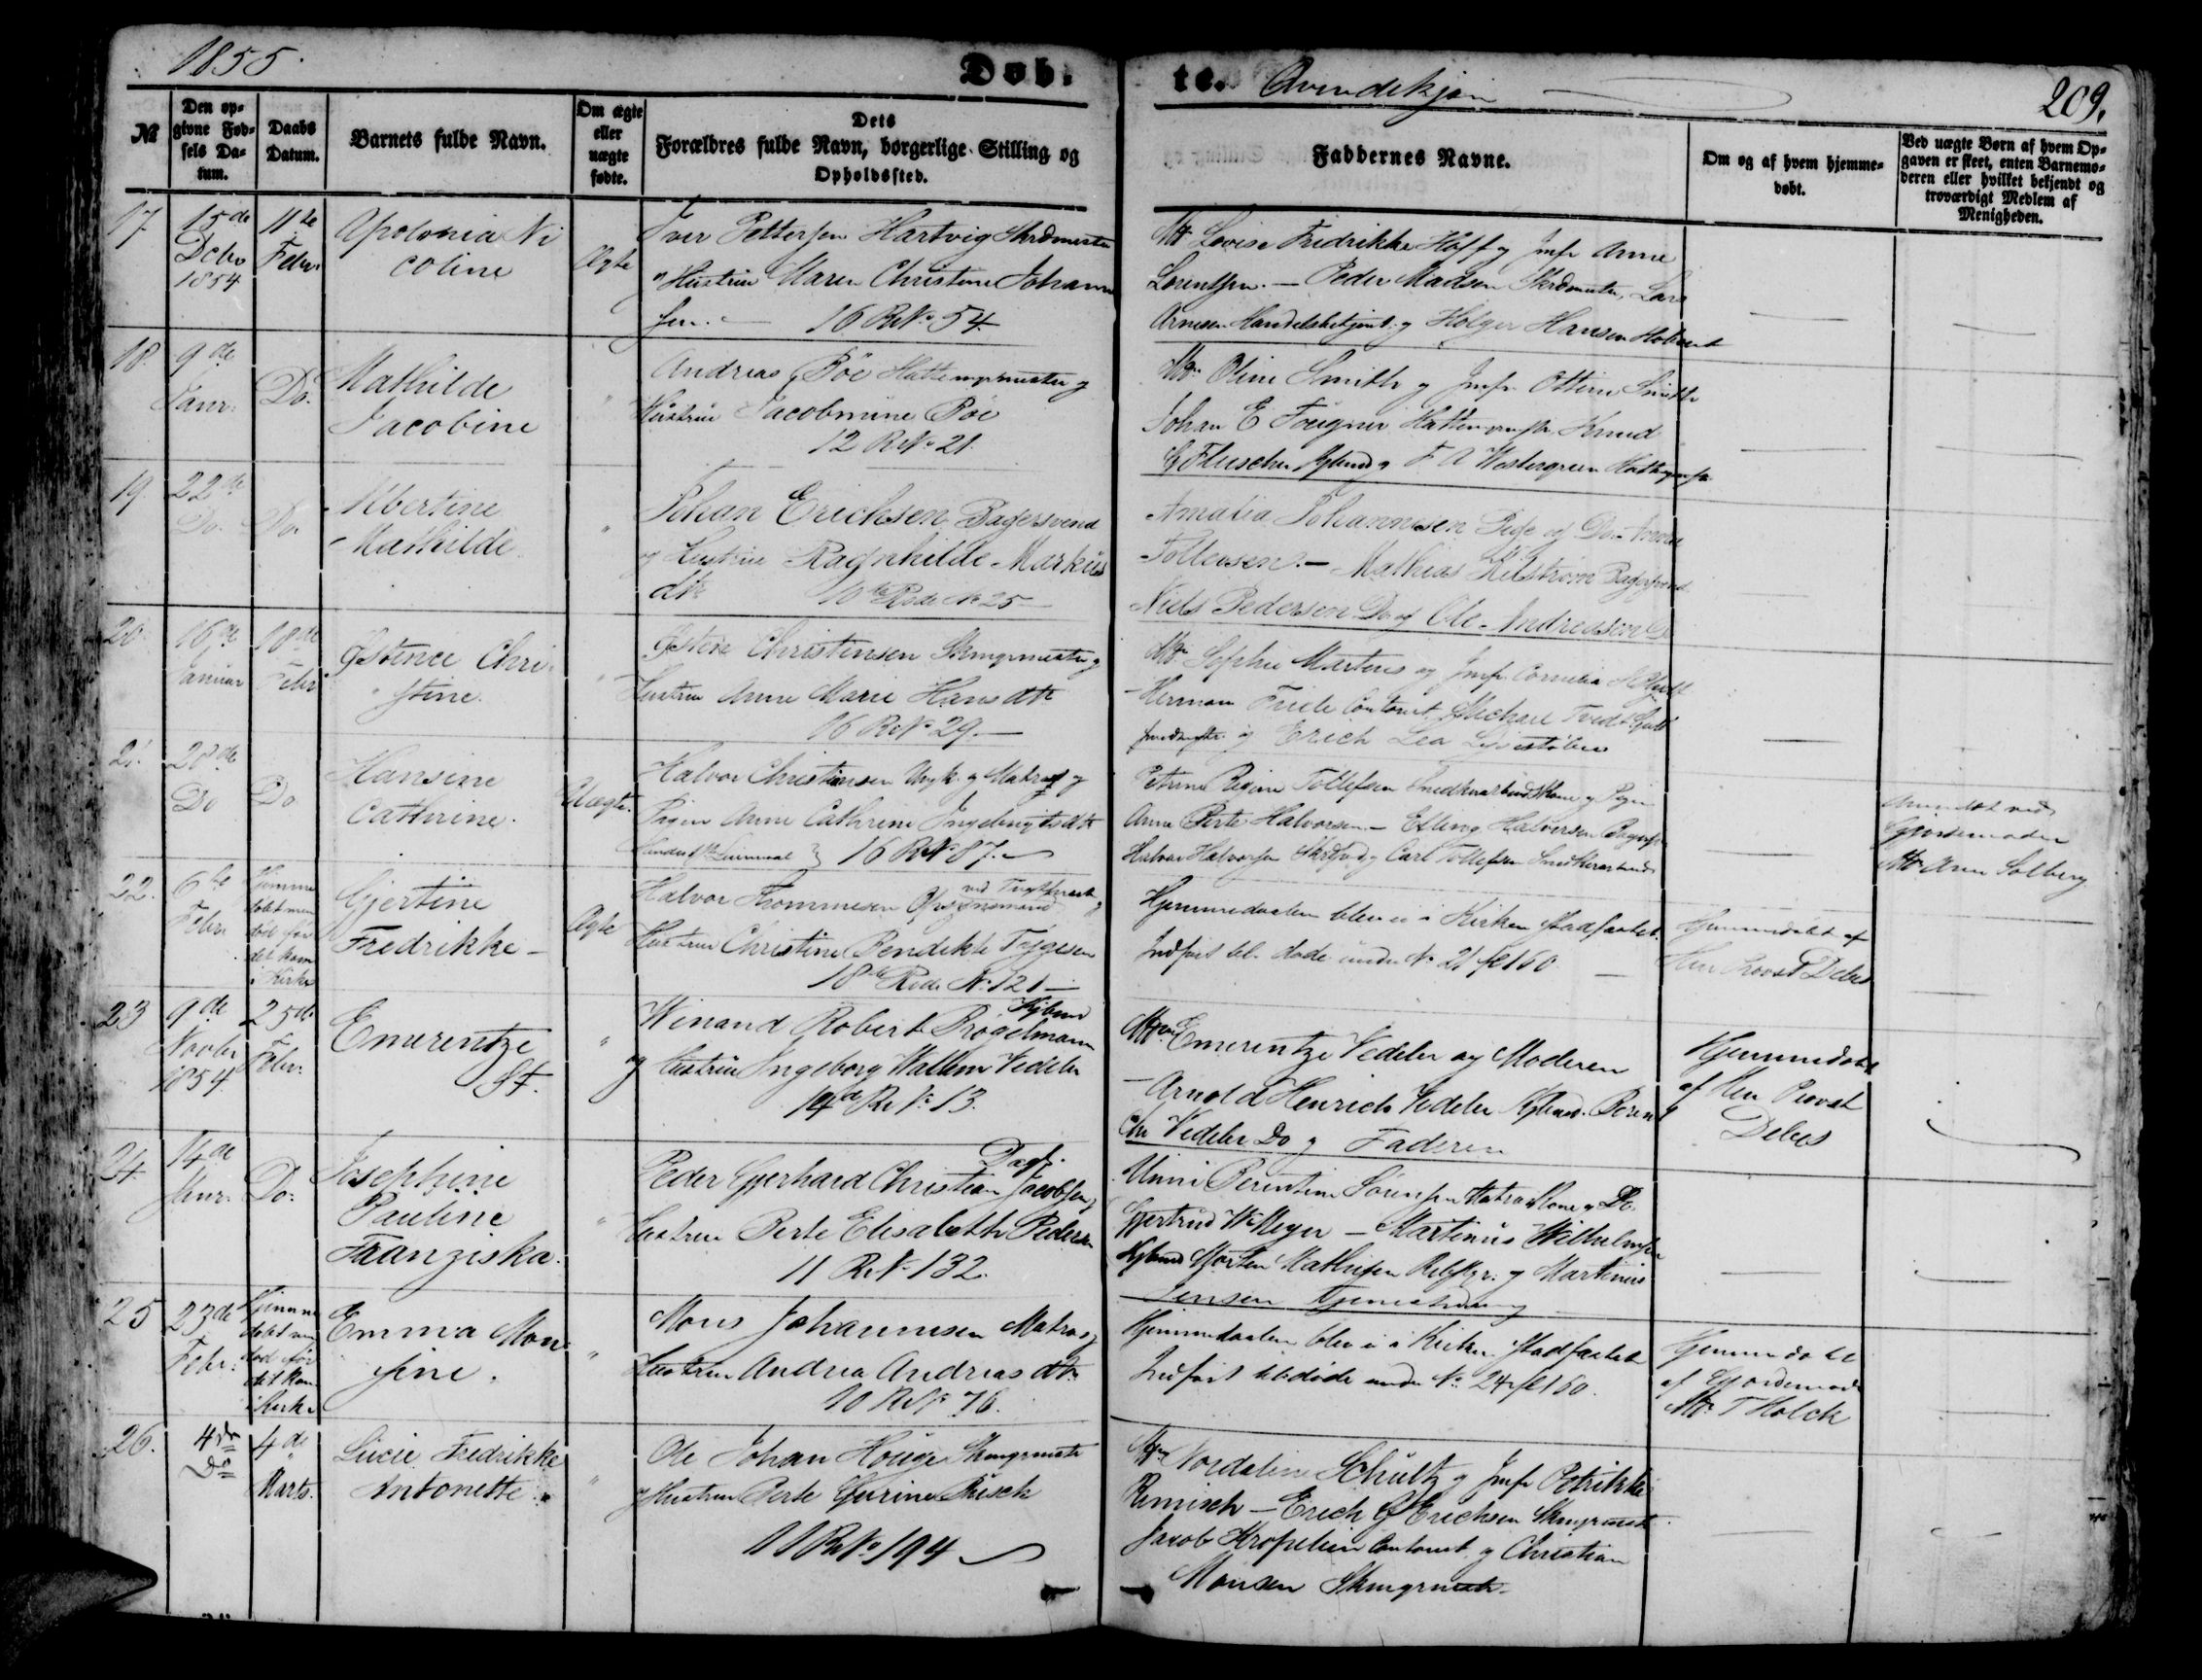 1855.
Døb.
te. Qvindekjøn
209.
№
Den op-
givne Fød-
sels Da-
tum.
Daabs
Datum.
Barnets fulde Navn.
Om ægte
eller
uægte
fødte.
Dets
Forældres fulde Navn, borgerlige Stilling og
Opholdssted.
Faddernes Navne.
Om og af hvem hjemme-
døbt.
Ved uægte Børn af hvem Op-
gaven er skeet, enten Barnemo-
deren eller hvilket bekjendt og
troværdigt Medlem af
Menigheden.
17
15de
Decbr
1854
11te
Febr.
Apolonia Ni
coline
Ægte
Iver Pettersen Hartvig Skrdmester
og Hustrue Maren Christine Johanne
sen. — 16 R. No 54
Md Lovise Fredrikke Hoff og Jmfr Anne
Lorentsen. — Peder Madsen Skrdmester, Lars
Arnesen Handelsbetjent og Holger Hansen
18.
9de
Janr.
Do.
Mathilde
Jacobine
"
Andreas Böe Hattemgrmester og
Hustrue Jacobmine Böe
12 R. No 21.
Md Oline Smith og Jmfr. Ottine Smith
Johan E Fougner Hattemgrmstr Knud
G Fleischer Kjbmd og F A Westergreen
19.
22de
Do.
Do.
Albertine
Mathilde
"
Johan Erichsen Bagersvend
og Hustrue Ragnhilde Markus
dtr 10de Rode No 25 —
Amalia Johannesen Pige og Do. Anne
Tollevsen. — Mathias Bagersvend
Niels Pedersen Do og Ole Andreassen Do
20.
16de
Januar
18de
Febr
Gstence Chri-
stine.
"
Gsten Christensen Skmgrmester og
Hustrue Anne Marie Hansdtr
16 R. No 29. —
Md Sophie Martens og Jmfr. Cornelia
Herman Friele Contorist, Michael Tvedt Guld
smedmstr og Erich Lea
21.
28de
Do
Do
Hansine
Cathrine.
Uægte.
Halvor Christiansen Ungk. og Matros og
Pigen Anne Cathrine Ingebrigtsdtr
16 R. No 87. —
Petrine Regine Tollefsen Snedkersvends Kone og Pigen
Anne Berte Halvorsen — Elling Halvorsen Bagersv
Halvor Halvorsen Skrdsvd og Carl Tollefsen Snedkersvend
Anmeldt ved
Gjordemoder
Md Anne Solberg
22.
6te
Febr
Hjemme
døbt men
død før
det kom
i Kirke
Gjertine
Fredrikke —
Ægte
Halvor Thommesen Opsynsmand ved Tugthuset og
Hustrue Christine Bendikte Tygesen
18de Rode No 121 —
Hjemmedaaben blev ei i Kirken stadfæstet.
Indført bl. døde under No 21 fol 160. —
Hjemmedøbt af
Herr Provst Debes
23
9de
Novbr
1854
25de
Febr.
Emerentze
St.
"
Winand Robert Krogelmann Kjbmd
og Hustrue Ingeborg Wallem Vedeler
14de R. No 13.
Mdm Emerentze Vedeler og Moderen
— Arnold Henrich Vedeler Kjbmd. Berent
Chr Vedeler Do og Faderen
Hjemmedøbt
af Herr Provst
Debes
24.
14de
Janr.
Do.
Josephine
Pauline
Franziska.
"
Peder Gjerhard Christian Jacobsen Dagk. og
Hustrue Berte Elisabeth Pedersen
11 R. No 132.
Unni Berentine Sørensen Matros Kone og Do
Gjertrud W. Meyer — Martinus Wilhelmsen
Kjbmd Morten Mathiesen Rebslgr. og Martinus
Jensen Tjenestedreng
25
23de
Febr.
Hjemme
døbt men
død før
det kom
i Kirke
Emma Mon-
sine.
"
Mons Johannesen Matros og
Hustrue Andrea Andreas dtr
10 R. No 76.
Hjemmedaaben blev ei i Kirken stadfæstet
Indført bl. døde under No. 24 fol 160.
Hjemmedøbt
af Gjordemoder
Md. T Holck
26.
4de
Do
4de
Marts.
Lucie Fredrikke
Antonette.
"
Ole Johan Houge Skmgrmester
og Hustrue Berte Gurine Risch
11 R. No 194 —
Mdm Nordaline Schultz og Jmfr Petrikke
Remisch — Erich G Erichsen Skmgrmest.
Jacob Kropelien Contorist og Christian
Monsen Skmgrmstr.